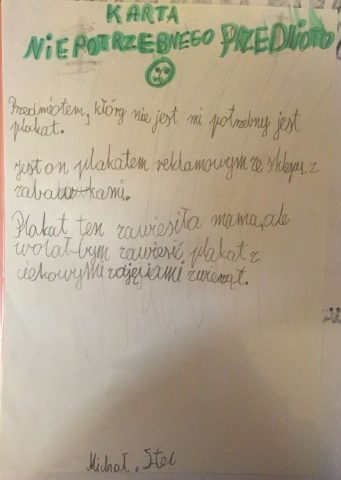 KARTA
NIEPOTRZEBNEGO PRZEDMIOTU
Przedmiotem, który nie jest mi potrzebny jest
plakat.
jest on plakatem reklamowym ze sklepu z
zabawkami.
Plakat ten zawiesiła mama, ale
wolał bym zawiesić plakat z
ciekowymi zdjęciami zwierząt.
Michał, Stec